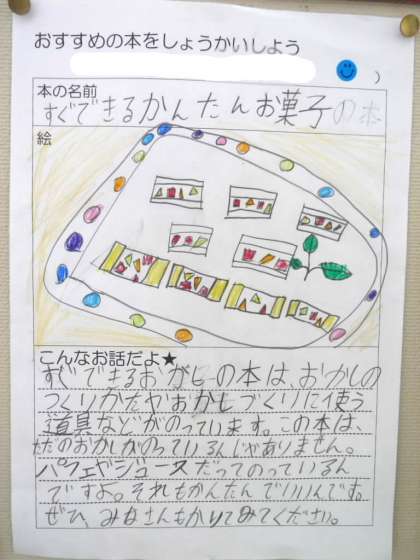 おすすめの本をしょうかいしよう
)
本の名前
すぐできるかんたんお菓子の本
絵
こんなお話だよ★
すぐできるおかしの本は、おかしの
つくりかたやおかしづくりに使う
道具などがのっています。この本は、
ただのおかしがのっているんじゃありません。
パフェやジュースだってのっているん
ですよ。それもかんたんでいいんです。
ぜひ、みなさんもかりてみてください。